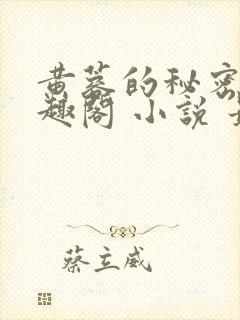 黄墓的秘密
趣阁 小说
蔡立威